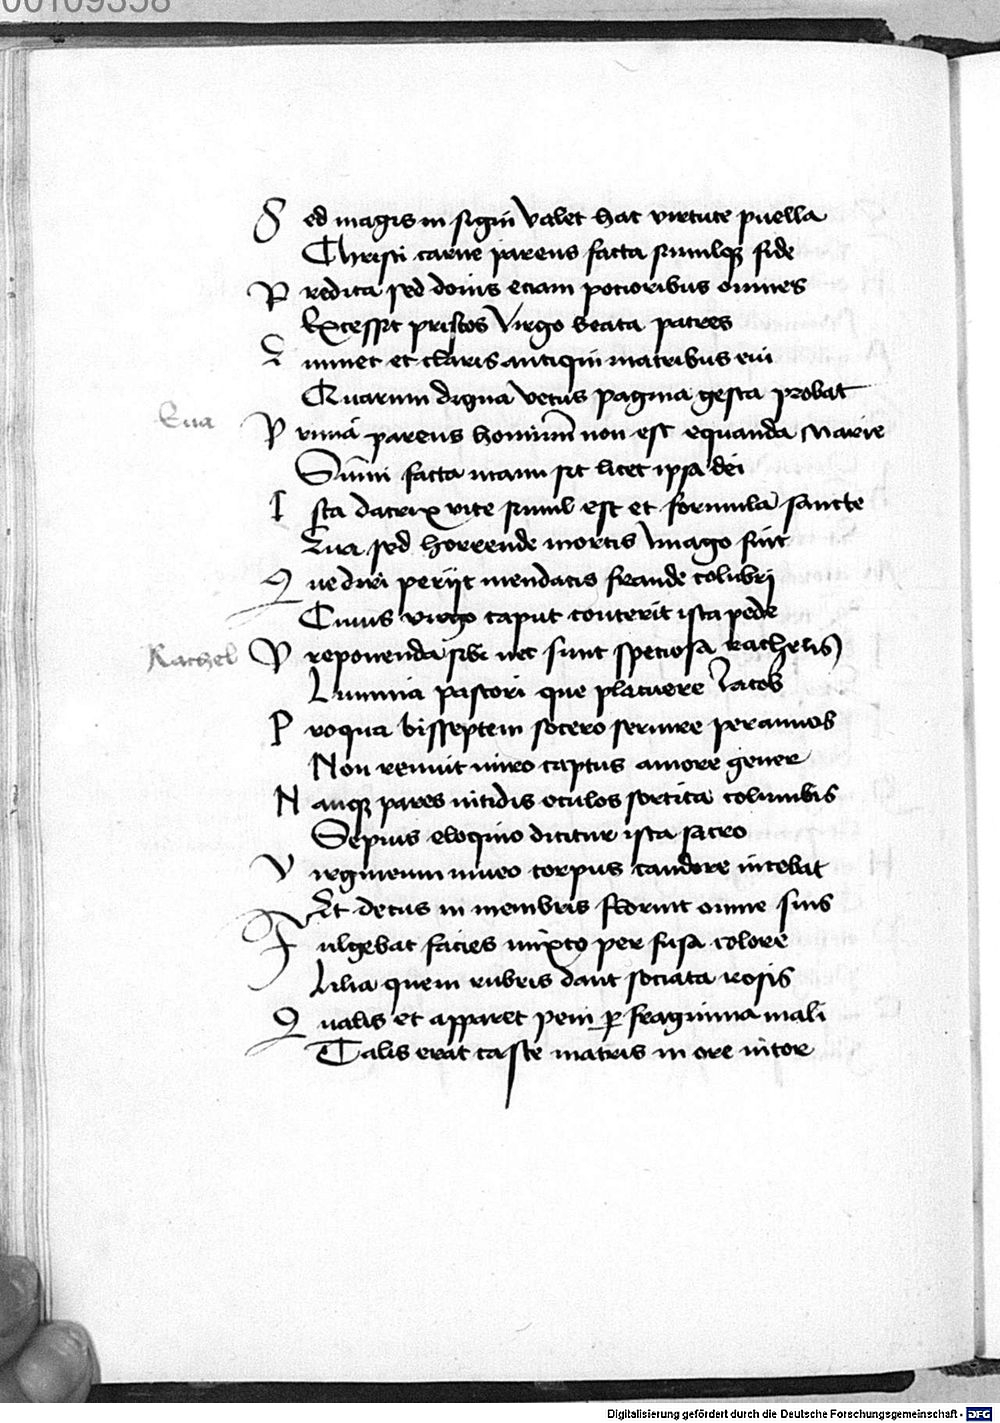 00109358
Sed magis in signi valet hac virtute puella
Christi carne parens facta simulqꝫ fide
Predita sed donis eciam pocioribus omnes
Excessit priscos Virgo beata patres
Eminet et claris antiqui matribus eui
Quarum digna vetus pagina gesta probat
Eua
Prima parens hominum̄ non est equanda Marie
Sum̄i facta manu sit licet ipsa dei
Ista datrix vite simul est et formula sancte
Eua sed horrende mortis Imago fuit
Que diri perijt mendacis fraude colubri
Cuius virgo caput conterit ista pede
Rachel
Preponenda sibi nec sunt speciosa rachelis
Lumina pastori que placuere Iacob
Proqua bisseptem socero seruire per annos
Non renuit miro captus amore gener
Nanqꝫ pares nitidis oculos sortita columbis
Sepius eloquio dicitur ista sacro
Virgineum niueo corpus candore nitebat
Et decus in membris floruit omne suis
Fulgebat facies mixto per fusa colore
Lilia quem rubris dant sociata rosis
Qualis et apparet peni ꝑ fragmina mali
Talis erat caste matris in ore nitor
Digitalisierung gefördert durch die Deutsche Forschungsgemeinschaft - DFG